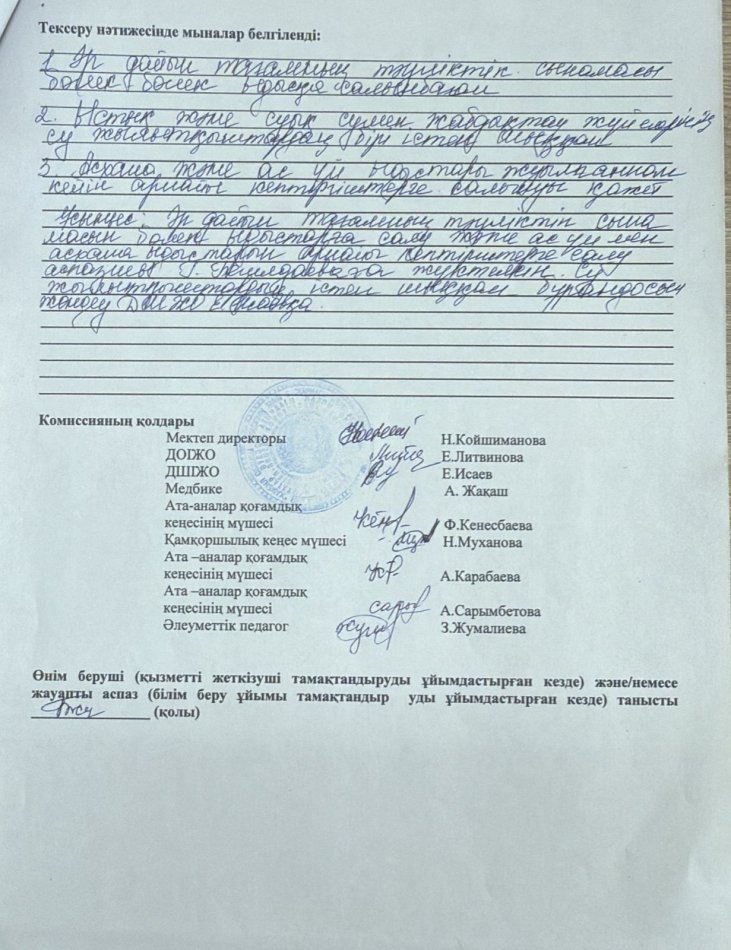 Тексеру нәтижесінде мыналар белгіленді:
1. Әр дайын тағамның тәуліктік сынамасы
бөлек бөлек ыдысқа салынбаған
2. Ыстық және суық сумен жабдықтау жүйелерінің
су жылытқыштардың бірі істен шыққан
3. Асхана және ас үй ыдыстары жуылғаннан
кейін арнайы кептіргіштерге салынуы қажет
Ұсыныс: Әр дайын тағамның тәуліктік сына
масын бөлек ыдыстарға салу және ас үй мен
асхана ыдыстарын арнайы кептіргіштерге салу
аспазшы Г. жүктелсін. Су
істен шыққан
жөндеу ДШІЖО Е.Исаевқа.
Комиссияның қолдары
Мектеп директоры Н.Койшиманова
ДОІЖО Е.Литвинова
ДШІЖО Е.Исаев
Медбике А. Жақаш
Ата-аналар қоғамдық
кеңесінің мүшесі Ф.Кенесбаева
Қамқоршылық кеңес мүшесі Н.Муханова
Ата –аналар қоғамдық
кеңесінің мүшесі А.Карабаева
Ата –аналар қоғамдық
кеңесінің мүшесі А.Сарымбетова
Әлеуметтік педагог З.Жумалиева
Өнім беруші (қызметті жеткізуші тамақтандыруды ұйымдастырған кезде) және/немесе
жауапты аспаз (білім беру ұйымы тамақтандыр уды ұйымдастырған кезде) танысты
(қолы)